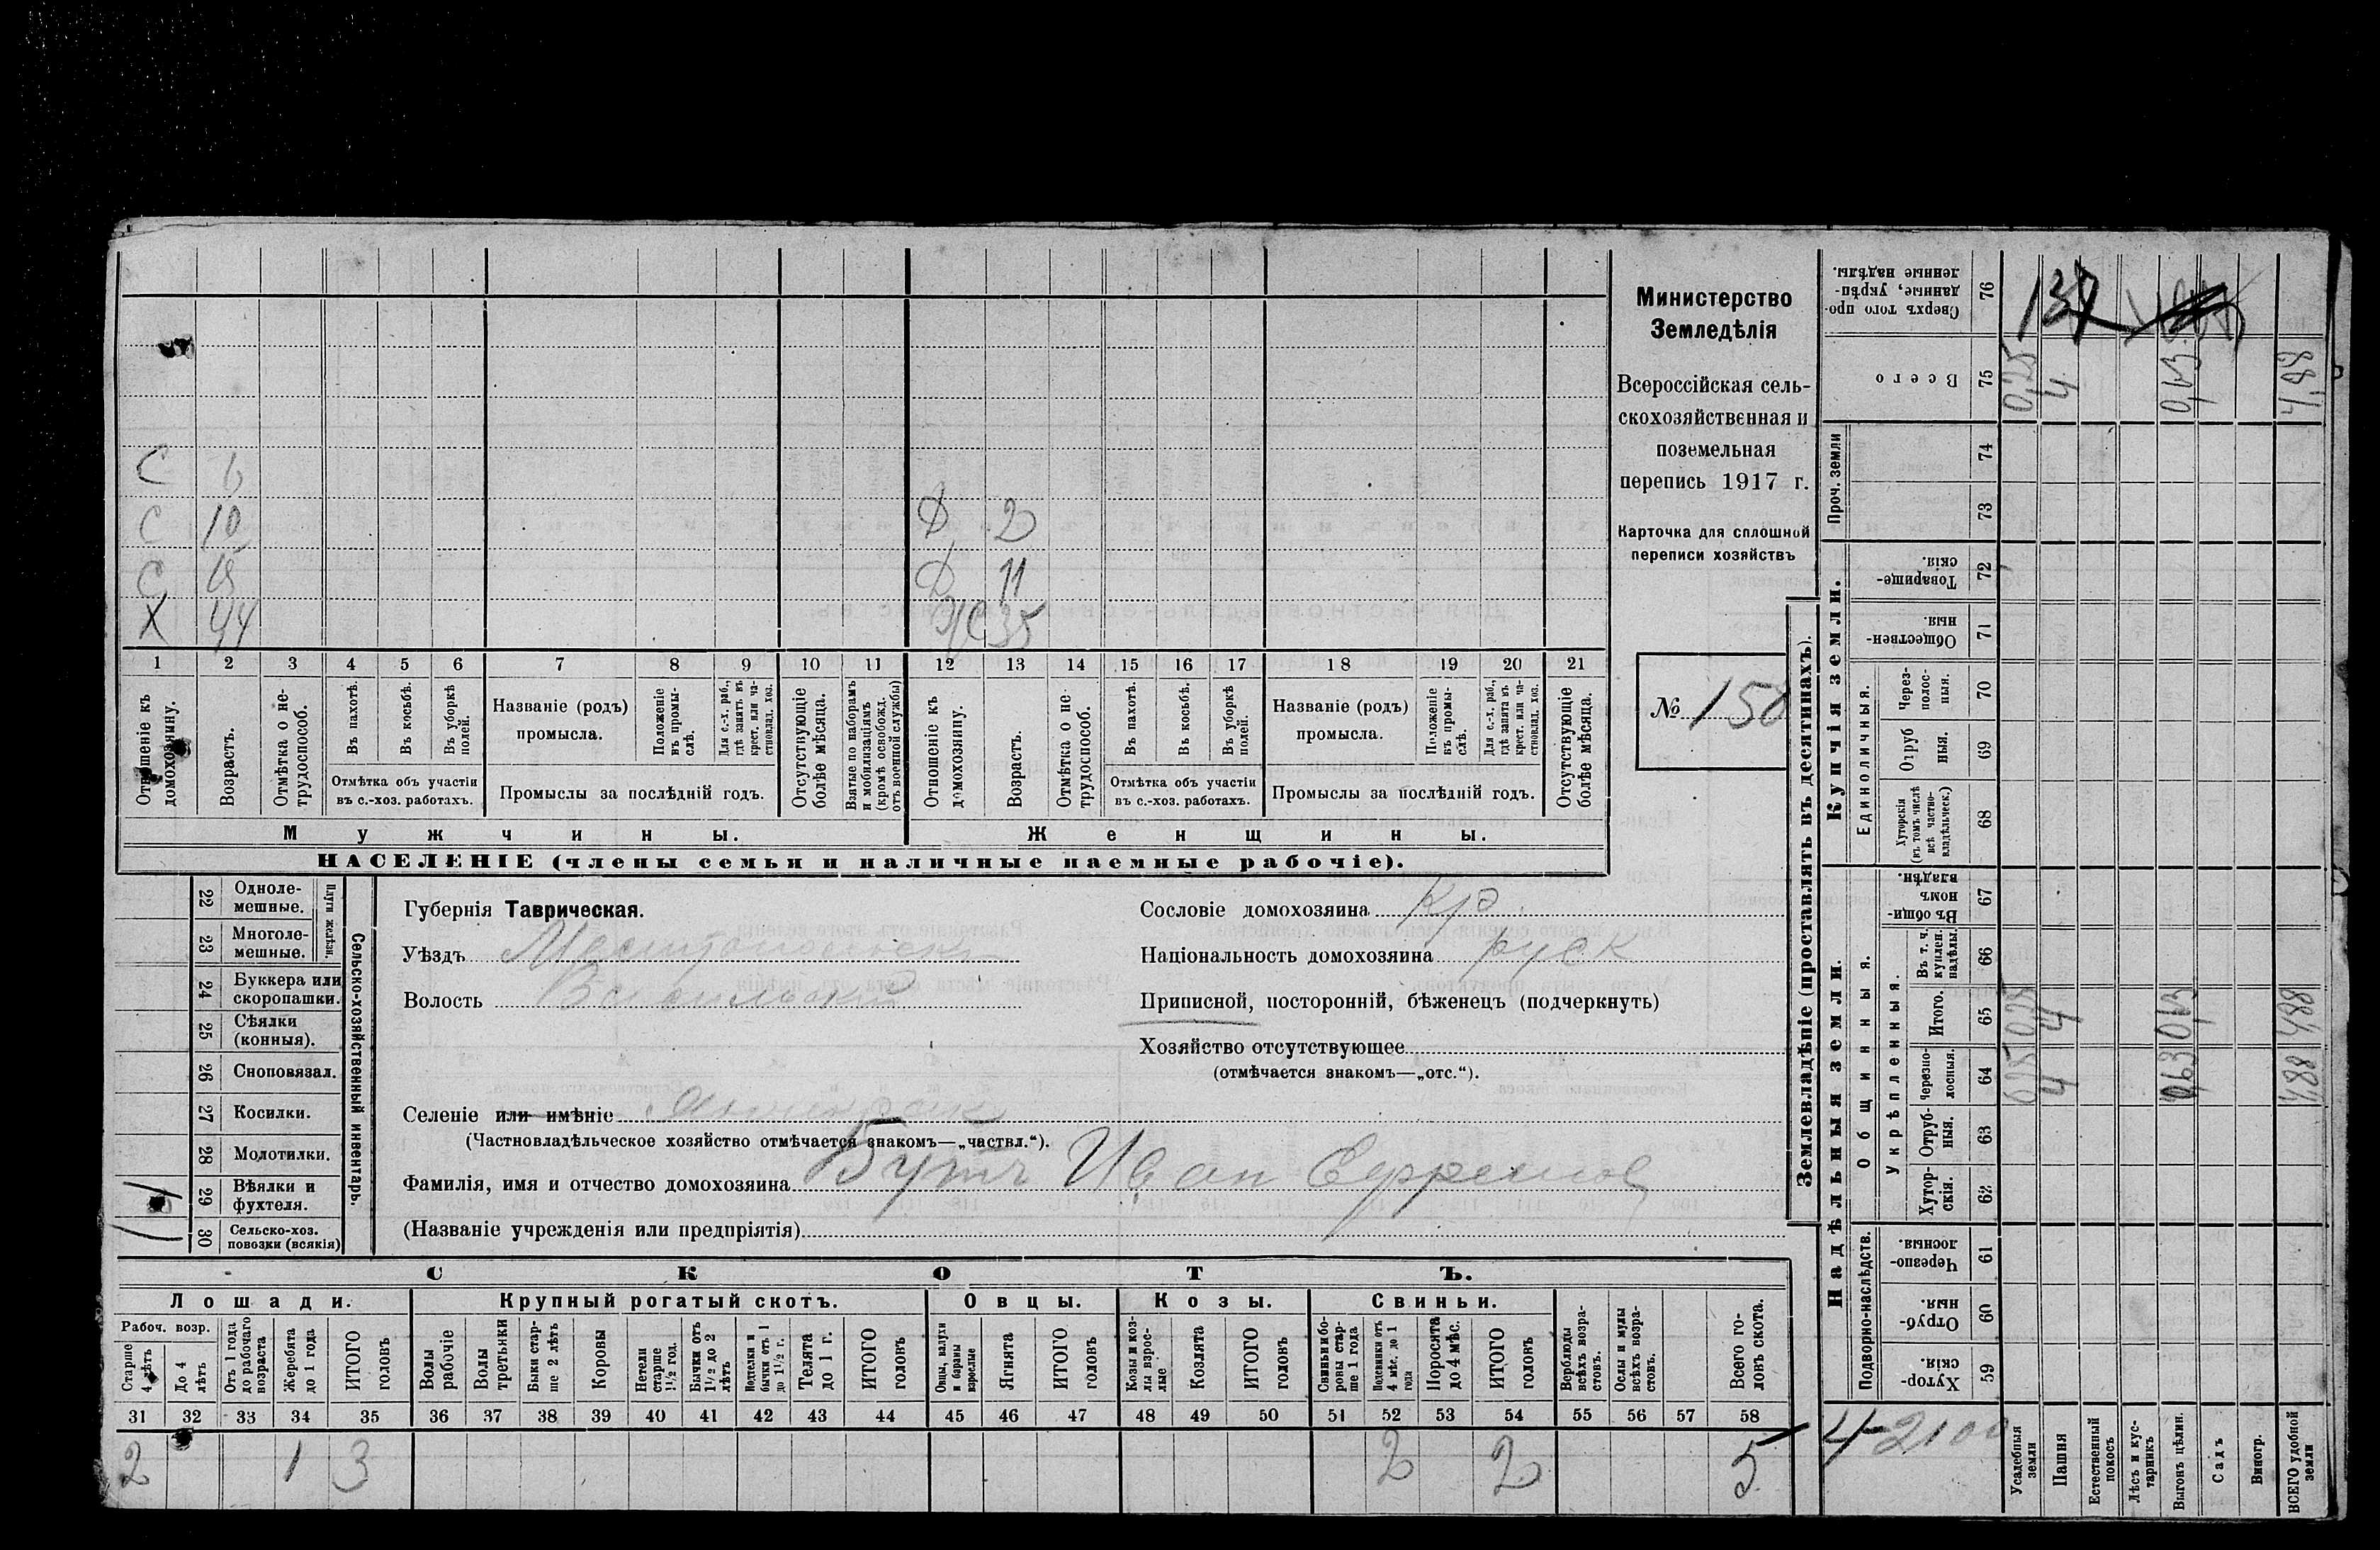 С 6
С 10 Д 2
С 15 Д 11
Х 44 Ж 35
1 2 3 4 5 6 7 8 9 10 11 12 13 14 15 16 17 18 19 20 21
Отношеніе къ домохозяину.
Возрастъ.
Отмѣтка о не-трудоспособ.
Въ пахотѣ.
Въ косьбѣ.
Въ уборкѣ полей.
Отмѣтка объ участіи въ с.-хоз. работахъ.
Названіе (родъ) промысла.
Положеніе въ промы-слѣ.
Для с.-х. раб., гдѣ занятъ въ крест. или ча-стновлад. хоз.
Промыслы за послѣдній годъ.
Отсутствующіе болѣе мѣсяца.
Взятые по наборамъ и мобилизаціямъ (кромѣ освобожд. отъ военной службы)
Отношеніе къ домохозяину.
Возрастъ.
Отмѣтка о не-трудоспособ.
Въ пахотѣ.
Въ косьбѣ.
Въ уборкѣ полей.
Отмѣтка объ участіи въ с.-хоз. работахъ.
Названіе (родъ) промысла.
Положеніе въ промы-слѣ.
Для с.-х. раб., гдѣ занята въ крест. или ча-стновлад. хоз.
Промыслы за послѣдній годъ.
Отсутствующіе болѣе мѣсяца.
Мужчины. Женщины.
НАСЕЛЕНІЕ (члены семьи и наличные наемные рабочіе).
Министерство
Земледѣлія
Всероссійская сель-
скохозяйственная и
поземельная
перепись 1917 г.
Карточка для сплошной
переписи хозяйствъ
№ 150
22 Одноле-мешные.
23 Многоле-мешные.
Плуги желѣзн.
24 Буккера или скоропашки.
25 Сѣялки (конныя).
26 Сноповязал.
27 Косилки.
28 Молотилки.
29 Вѣялки и фухтеля.
1 30 Сельско-хоз. повозки (всякія)
Сельско-хозяйственный инвентарь.
Губернія Таврическая.
Уѣздъ
Волость
Селеніе или имѣніе
(Частновладѣльческое хозяйство отмѣчается знакомъ—„частвл.“).
Фамилія, имя и отчество домохозяина Иван Ефремов
(Названіе учрежденія или предпріятія)
Сословіе домохозяина Кр.
Національность домохозяина руск
Приписной, посторонній, бѣженецъ (подчеркнуть)
Хозяйство отсутствующее
(отмѣчается знакомъ—„отс.“).
СКОТЪ.
Лошади. Крупный рогатый скотъ. Овцы. Козы. Свиньи.
Рабоч. возр.
Старше 4 лѣтъ
До 4 лѣтъ
Отъ 1 года до рабочаго возраста
Жеребята до 1 года
ИТОГО головъ
Волы рабочіе
Волы третьячки
Быки стар-ше 2 лѣтъ
Коровы
Нетели старше 1½ год.
Бычки отъ 1½ до 2 лѣтъ
Подтелки и бычки отъ 1 до 1½ г.
Телята до 1 г.
ИТОГО головъ
Овцы, валухи и бараны взрослые
Ягнята
ИТОГО головъ
Козы и коз-лы взрос-лые
Козлята
ИТОГО головъ
Свиньи и бо-ровы стар-ше 1 года
Подсвинки отъ 4 мѣс. до 1 года
Поросята до 4 мѣс.
ИТОГО головъ
Верблюды всѣхъ возра-стовъ.
Ослы и мулы всѣхъ возра-стовъ.
Всего го-ловъ скота.
31 32 33 34 35 36 37 38 39 40 41 42 43 44 45 46 47 48 49 50 51 52 53 54 55 56 57 58
2 1 3 2 2 5
Землевладѣніе (проставлять въ десятинахъ).
Сверхъ того про-данные, укрѣп-ленные надѣлы. 76 137
Всего 75 0,25 4 0,63 4,88
Проч. земли
74
73
Купчія земли.
Товарище-скія. 72
Обществен-ныя. 71
Единоличныя.
Через-полос-ныя. 70
Отруб ныя. 69
Хуторскія (въ томъ числѣ всѣ частно-владѣльческ.) 68
Надѣльныя земли.
Общинныя.
Въ общи-номъ владѣн. 67
Укрѣпленныя.
Въ т. ч. куплен. надѣлы. 66
Итого. 65 0,25 4 0,63 4,88
Черезпо-лосныя. 64 0,25 4 0,63 4,88
Отруб-ныя. 63
Хутор-скія. 62
Подворно-наслѣдств.
Черезпо-лосныя. 61
Отруб-ныя. 60
Хутор-скія. 59
4-2100
Усадебныя земли
Пашня
Естественный покосъ
Лѣсъ и кус-тарникъ
Выгонъ цѣлин.
Садъ
Виногр.
ВСЕГО удобной земли